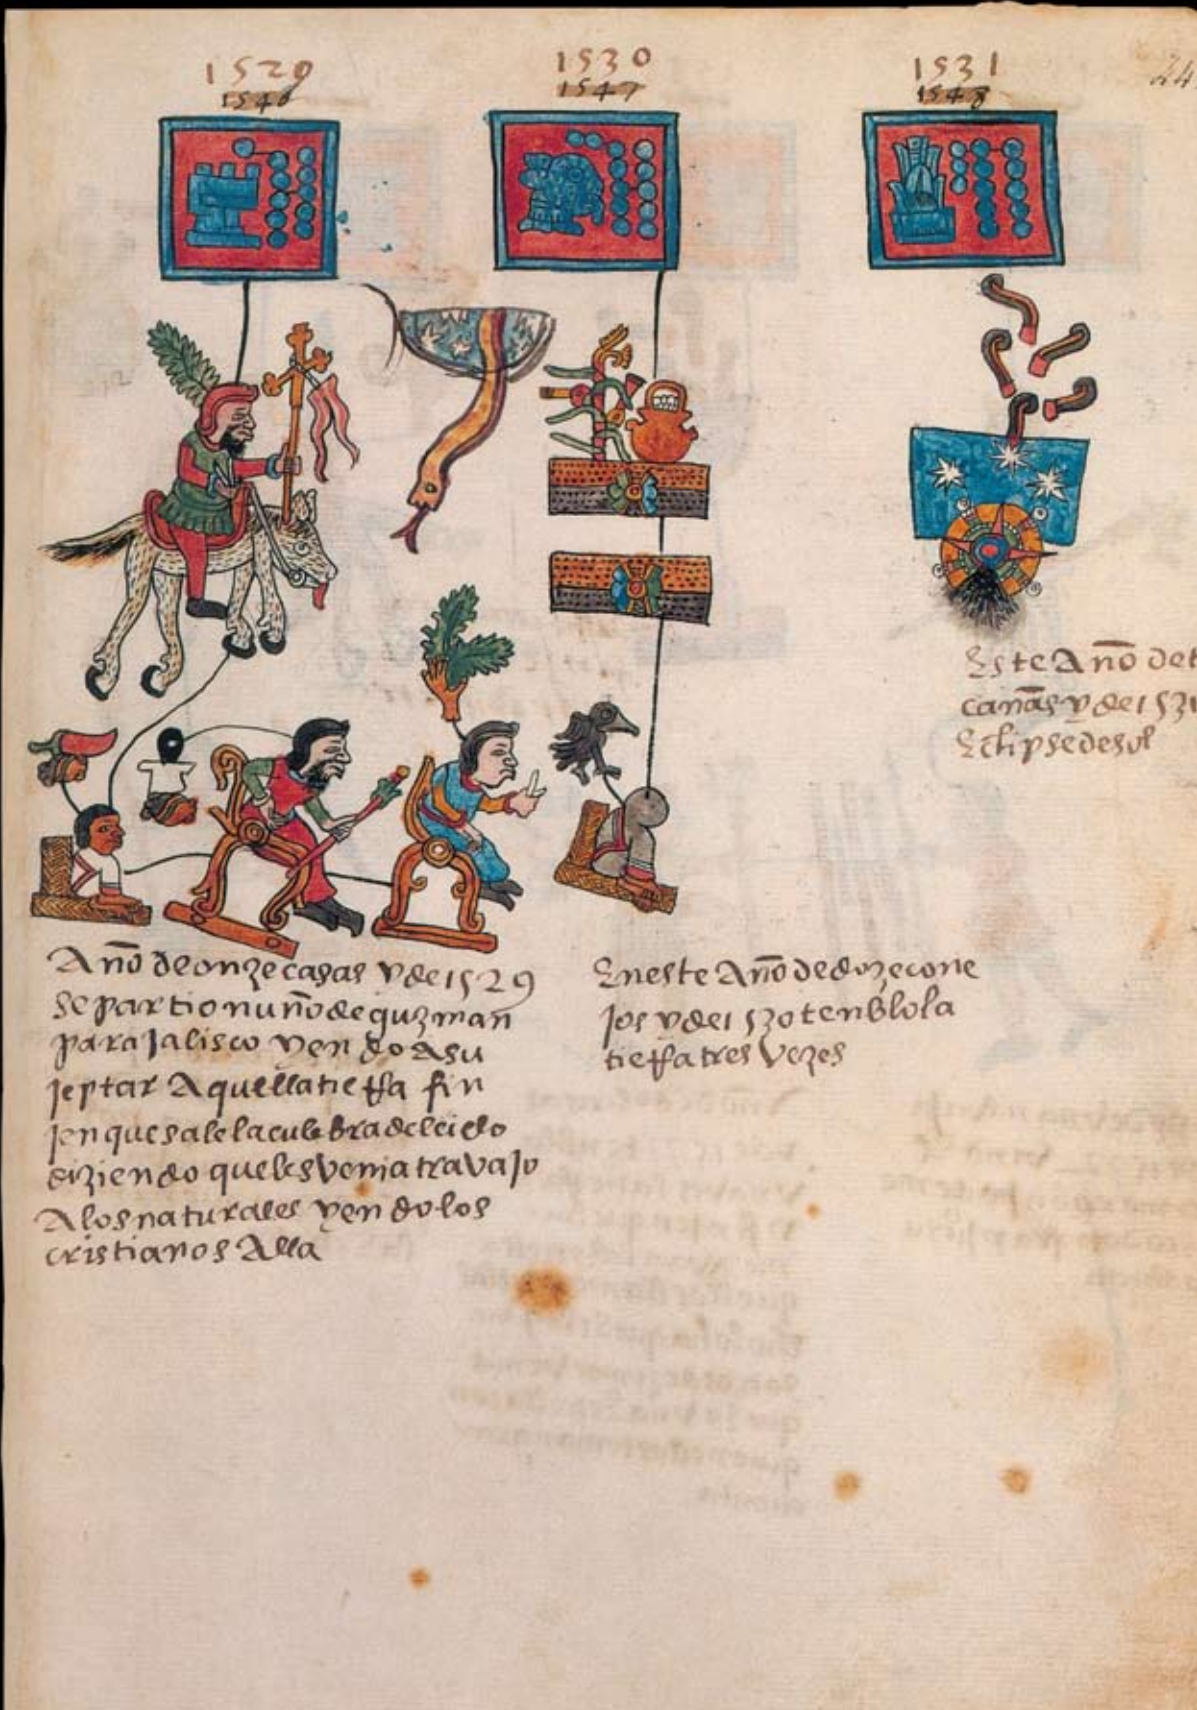 1529
1546
1530
1547
1531
1548
24
Año de onze casas y de 1529
se partio nuño de guzman
para Jalisco yendo a su
jeptar Aquella tierra fin
jen que sale la culebra del cielo
diziendo que les venia travajo
A los naturales yendo los
cristianos Alla
En este Año de doze cone
jos y de 1530 tenblo la
tierra tres vezes
Este Año de t
cañas y de 1531
Eclipse de sol